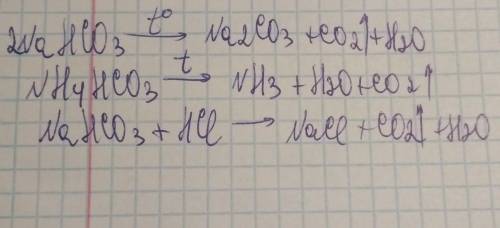 2NaHCO3 t° → Na2CO3 + CO2↑ + H2O
NH4HCO3 t → NH3 + H2O + CO2↑
NaHCO3 + HCl → NaCl + CO2↑ + H2O